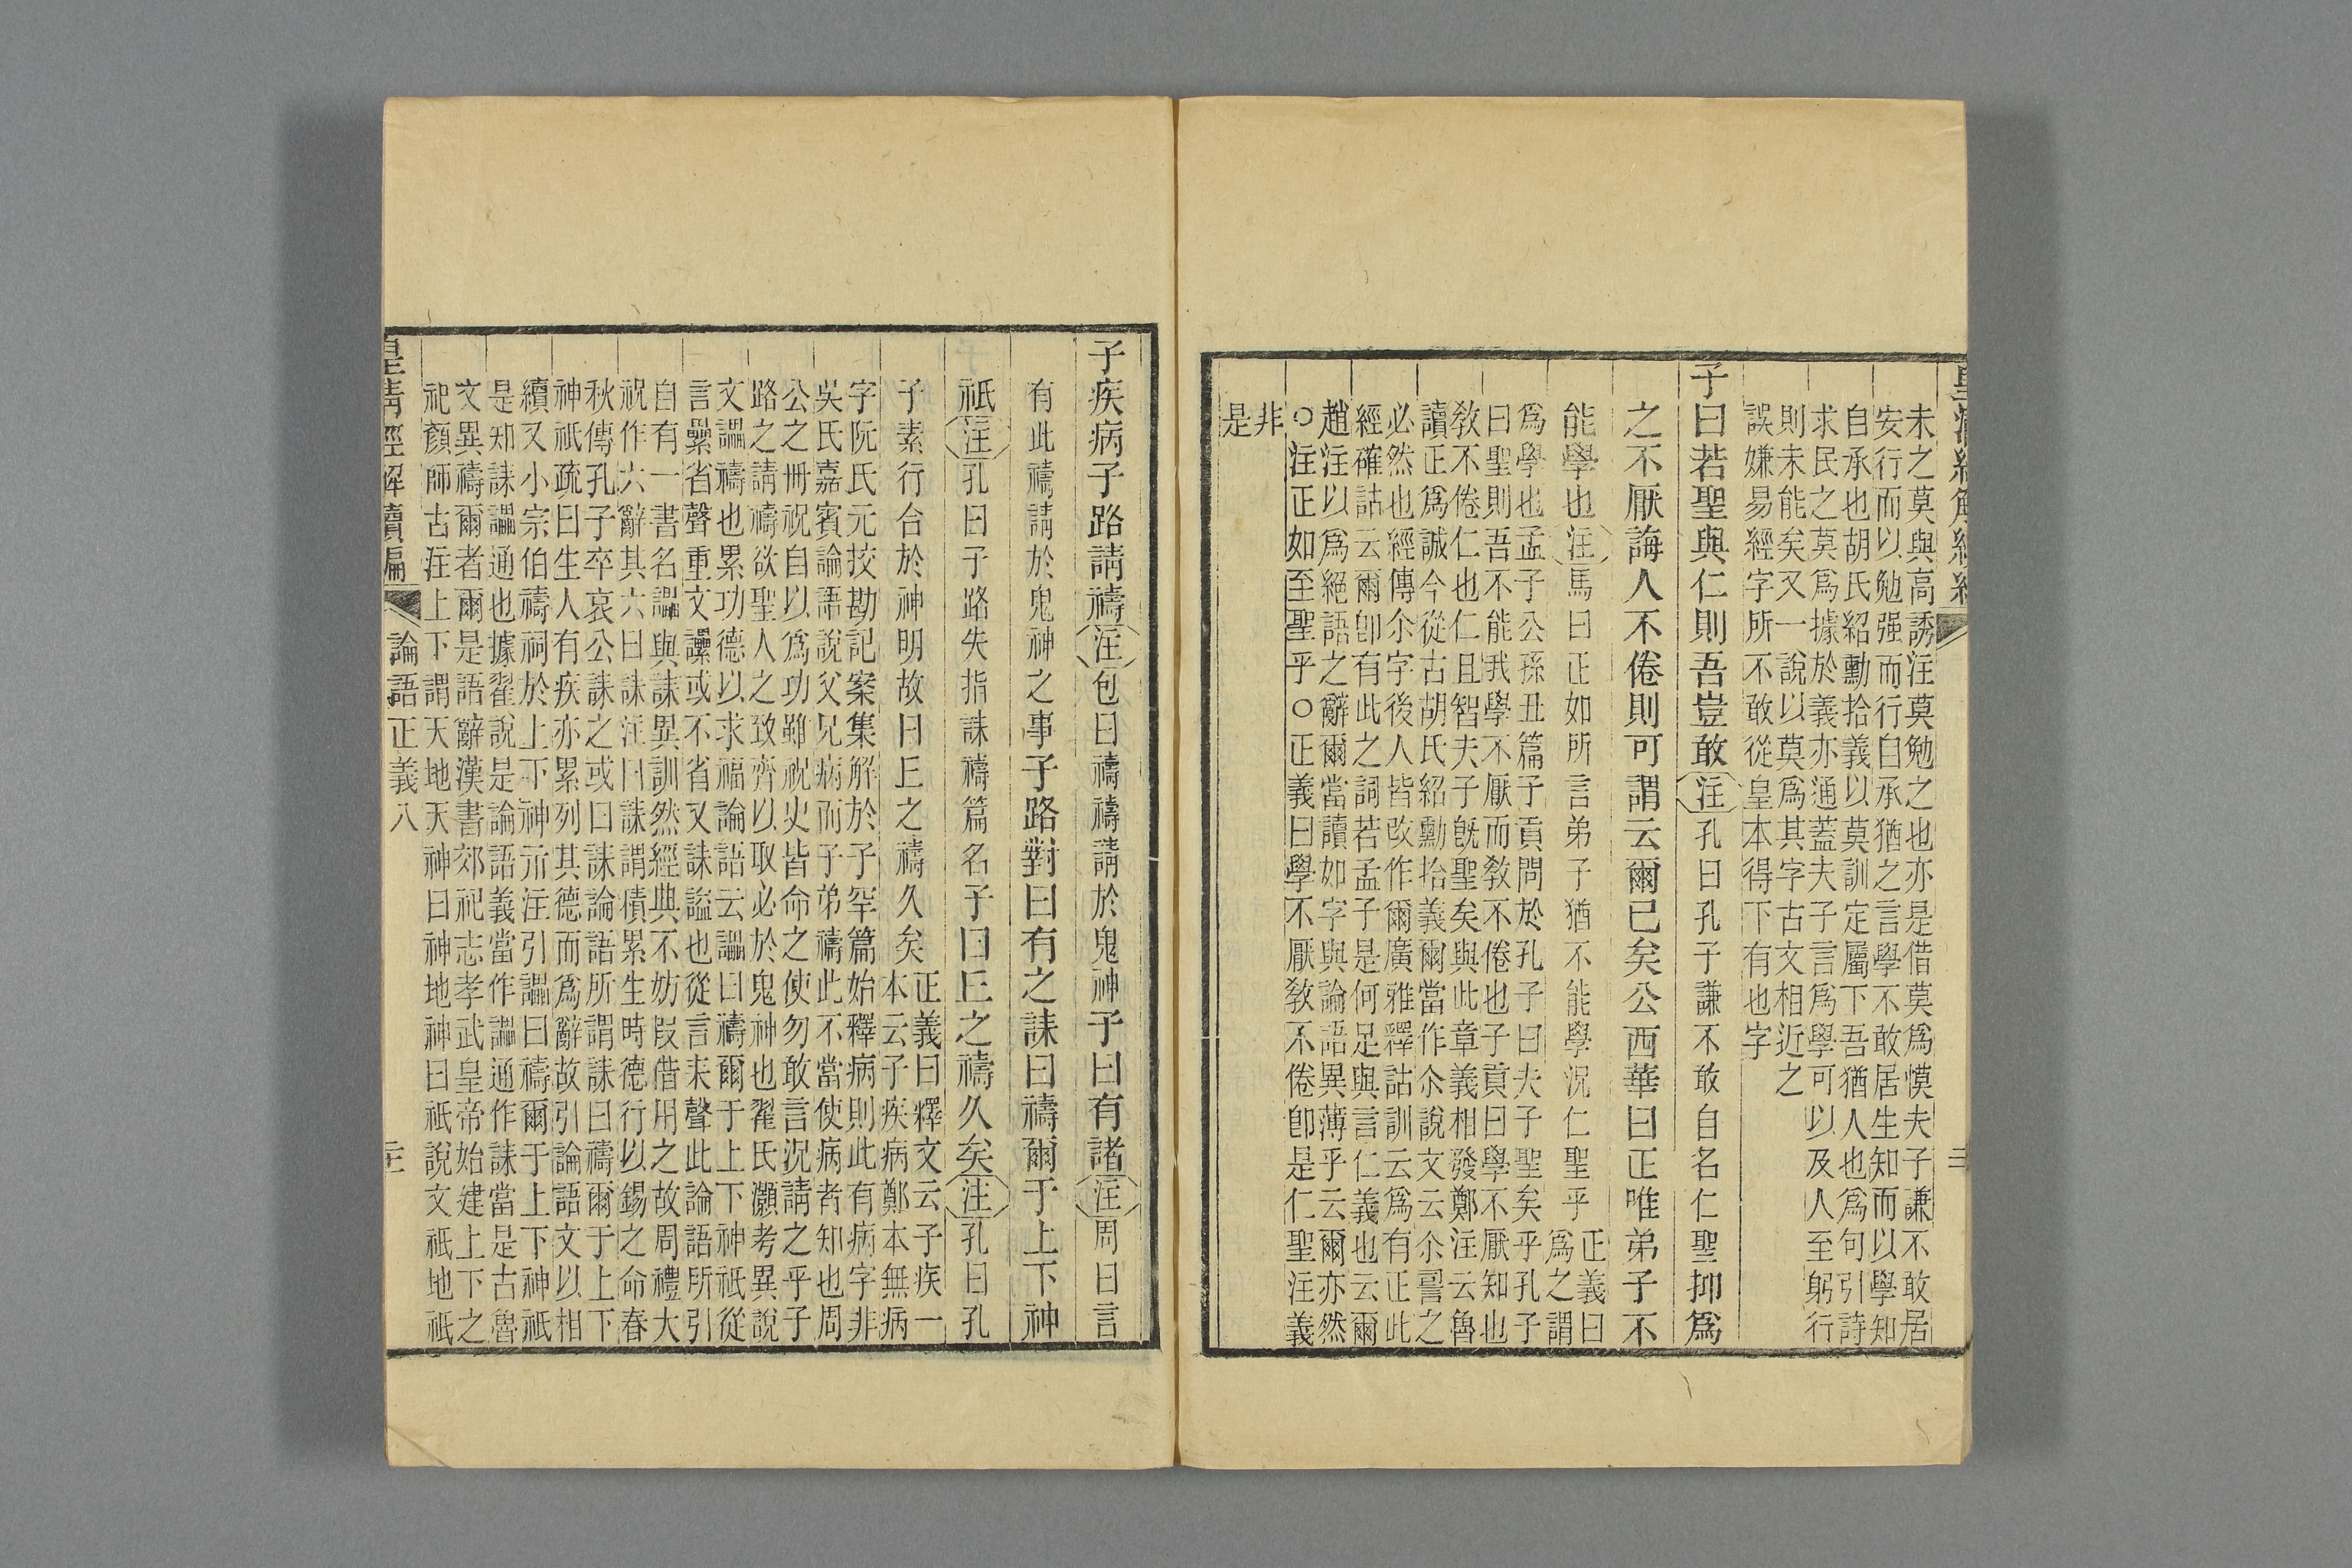 未之莫與高誘注莫勉之也亦是借莫爲慔夫子謙不敢居
安行而以勉强而行自承猶之言學不敢居生知而以學知
自承也胡氏紹勳拾義以莫訓定屬下吾猶人也爲句引詩
求民之莫爲據於義亦通蓋夫子言爲學可以及人至躬行
則未能矣又一說以莫爲其字古文相近之
誤嫌易經字所不敢從皇本得下有也字
子曰若聖與仁則吾豈敢注孔曰孔子謙不敢自名仁聖抑爲
之不厭誨人不倦則可謂云爾已矣公西華曰正唯弟子不
能學也注馬曰正如所言弟子猶不能學況仁聖乎
正義曰
爲之謂
爲學也孟子公孫丑篇子貢問於孔子曰夫子聖矣乎孔子
曰聖則吾不能我學不厭而敎不倦也子貢曰學不厭知也
敎不倦仁也仁且智夫子旣聖矣與此章義相發鄭注云魯
讀正爲誠今從古胡氏紹勳拾義爾當作尒說文云尒䛐之
必然也經傳尒字後人皆改作爾廣雅釋詁訓云爲有正此
經確詁云爾卽有此之詞若孟子是何足與言仁義也云爾
趙注以爲絕語之辭爾當讀如字與論語異薄乎云爾亦然
○注正如至聖乎○正義曰學不厭敎不倦卽是仁聖注義
非
是
子疾病子路請禱注包曰禱禱請於鬼神子曰有諸注周曰言
有此禱請於鬼神之事子路對曰有之誄曰禱爾于上下神
祇注孔曰子路失指誄禱篇名子曰丘之禱久矣注孔曰孔
子素行合於神明故曰丘之禱久矣
正義曰釋文云子疾一
本云子疾病鄭本無病
字阮氏元挍勘記案集解於子罕篇始釋病則此有病字非
吳氏嘉賓論語說父兄病而子弟禱此不當使病者知也周
公之冊祝自以爲功雖祝史皆命之使勿敢言況請之乎子
路之請禱欲聖人之致齊以取必於鬼神也翟氏灝考異說
文讄禱也累功德以求福論語云讄曰禱爾于上下神祇從
言纍省聲重文讄或不省又誄諡也從言耒聲此論語所引
自有一書名讄與誄異訓然經典不妨叚借用之故周禮大
祝作六辭其六曰誄注曰誄謂積累生時德行以錫之命春
秋傳孔子卒哀公誄之或曰誄論語所謂誄曰禱爾于上下
神祇疏曰生人有疾亦累列其德而爲辭故引論語文以相
續又小宗伯禱祠於上下神示注引讄曰禱爾于上下神祇
是知誄讄通也據翟說是論語義當作讄通作誄當是古魯
文異禱爾者爾是語辭漢書郊祀志孝武皇帝始建上下之
祀顏師古注上下謂天地天神曰神地神曰祇說文祇地祇
皇淸經解續編　論語正義八